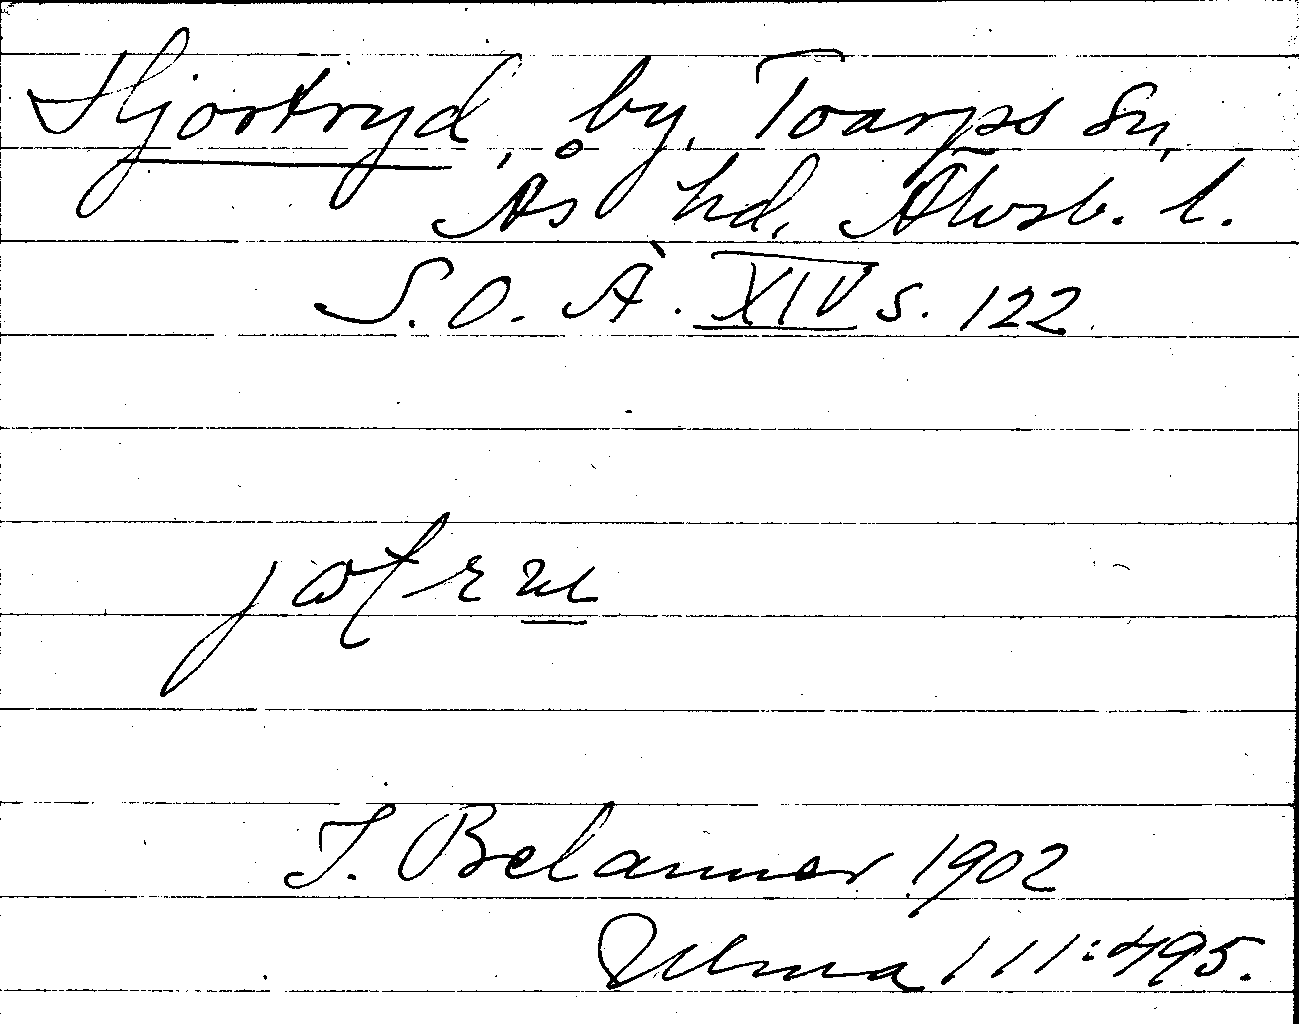 Hjortryd, by, Toarps sn,
Ås hd, Älvsb. l.
S. O. Ä. XIV s. 122
T. Belanner 1902
Ulma 111:495.